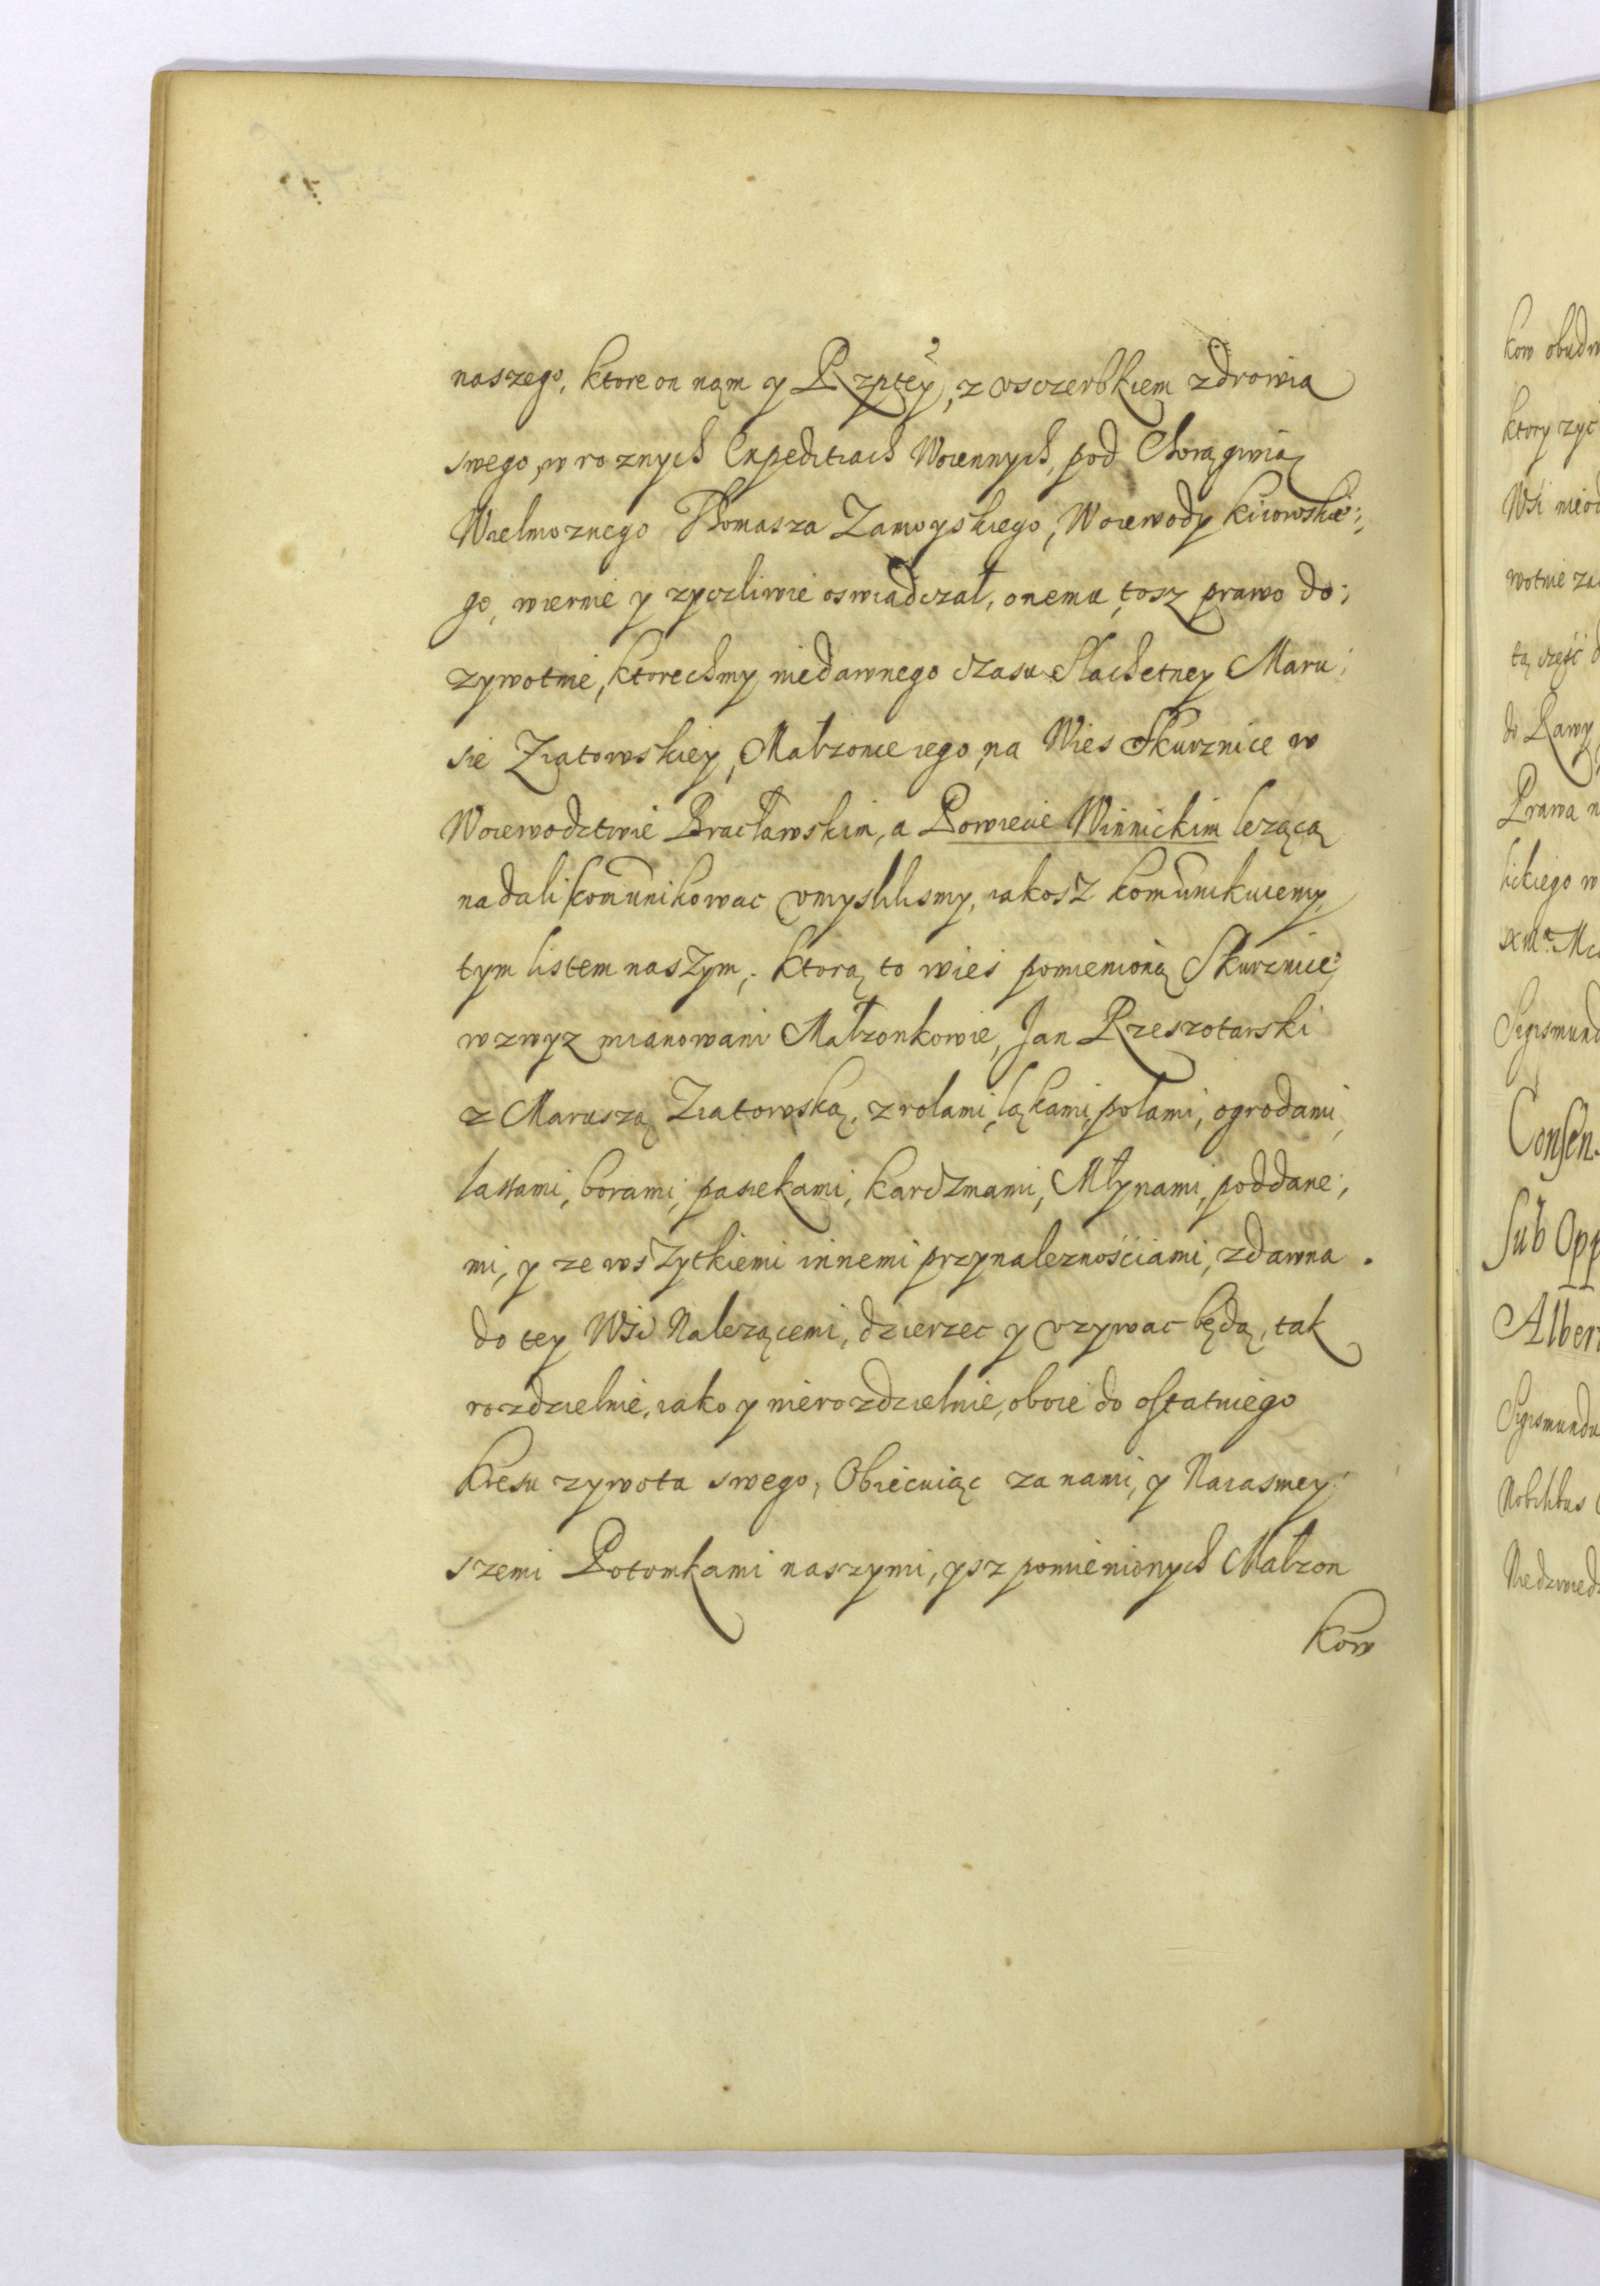 naszego, ktore on nąm y Rzptey, z vsczerbkiem zdrowia
swego, w roznych Expeditiach Woiennych, pod Chorągwią
Wielmoznego Thomasza Zamoyskiego, Woiewody kiiowskie:
go, wiernie y zyczliwie oswiadczał, onemu tosz prawo do:
zywotnie, ktorechmy niedawnego czasu Slachetney Maru:
sie Ziatowskiey, Małzonce iego, na Wies Skurznice w
Woiewodztwie Bracławskim, a Powiecie Winnickim lezącą
nadali komunikowac vmyslilismy, iakosz komunikuiemy,
tym listem naszym, ktorą to wies pomienioną Skurznice,
wzwyz mianowani Małzonkowie, Jan Rzeszotarski
z Maruszą Ziatowską, z rolami, łąkami, polami, ogrodami,
lassami, borami, pasiekami, karczmami, Młynami, poddane:
mi, y ze wszytkiemi innemi przynaleznościami, zdawna
do tey Wsi Nalezącemi, dzierzec y vzywac będą, tak
rozdzielnie, iako y nierozdzielnie, oboie do ostatniego
kresu zywota swego, Obiecuiąc za nami, y Naiasniey:
szemi Potomkami naszymi, ysz pomienionych Małzon
kow
kow obudw
ktory zyc
Wsi nieod
wotnie za
tą część d
do Rawy
Prawa n
lickiego w
Sigismund
Consen
sub Opp
Alber
Sigismundu
Nobilibus
Niedzwiedz